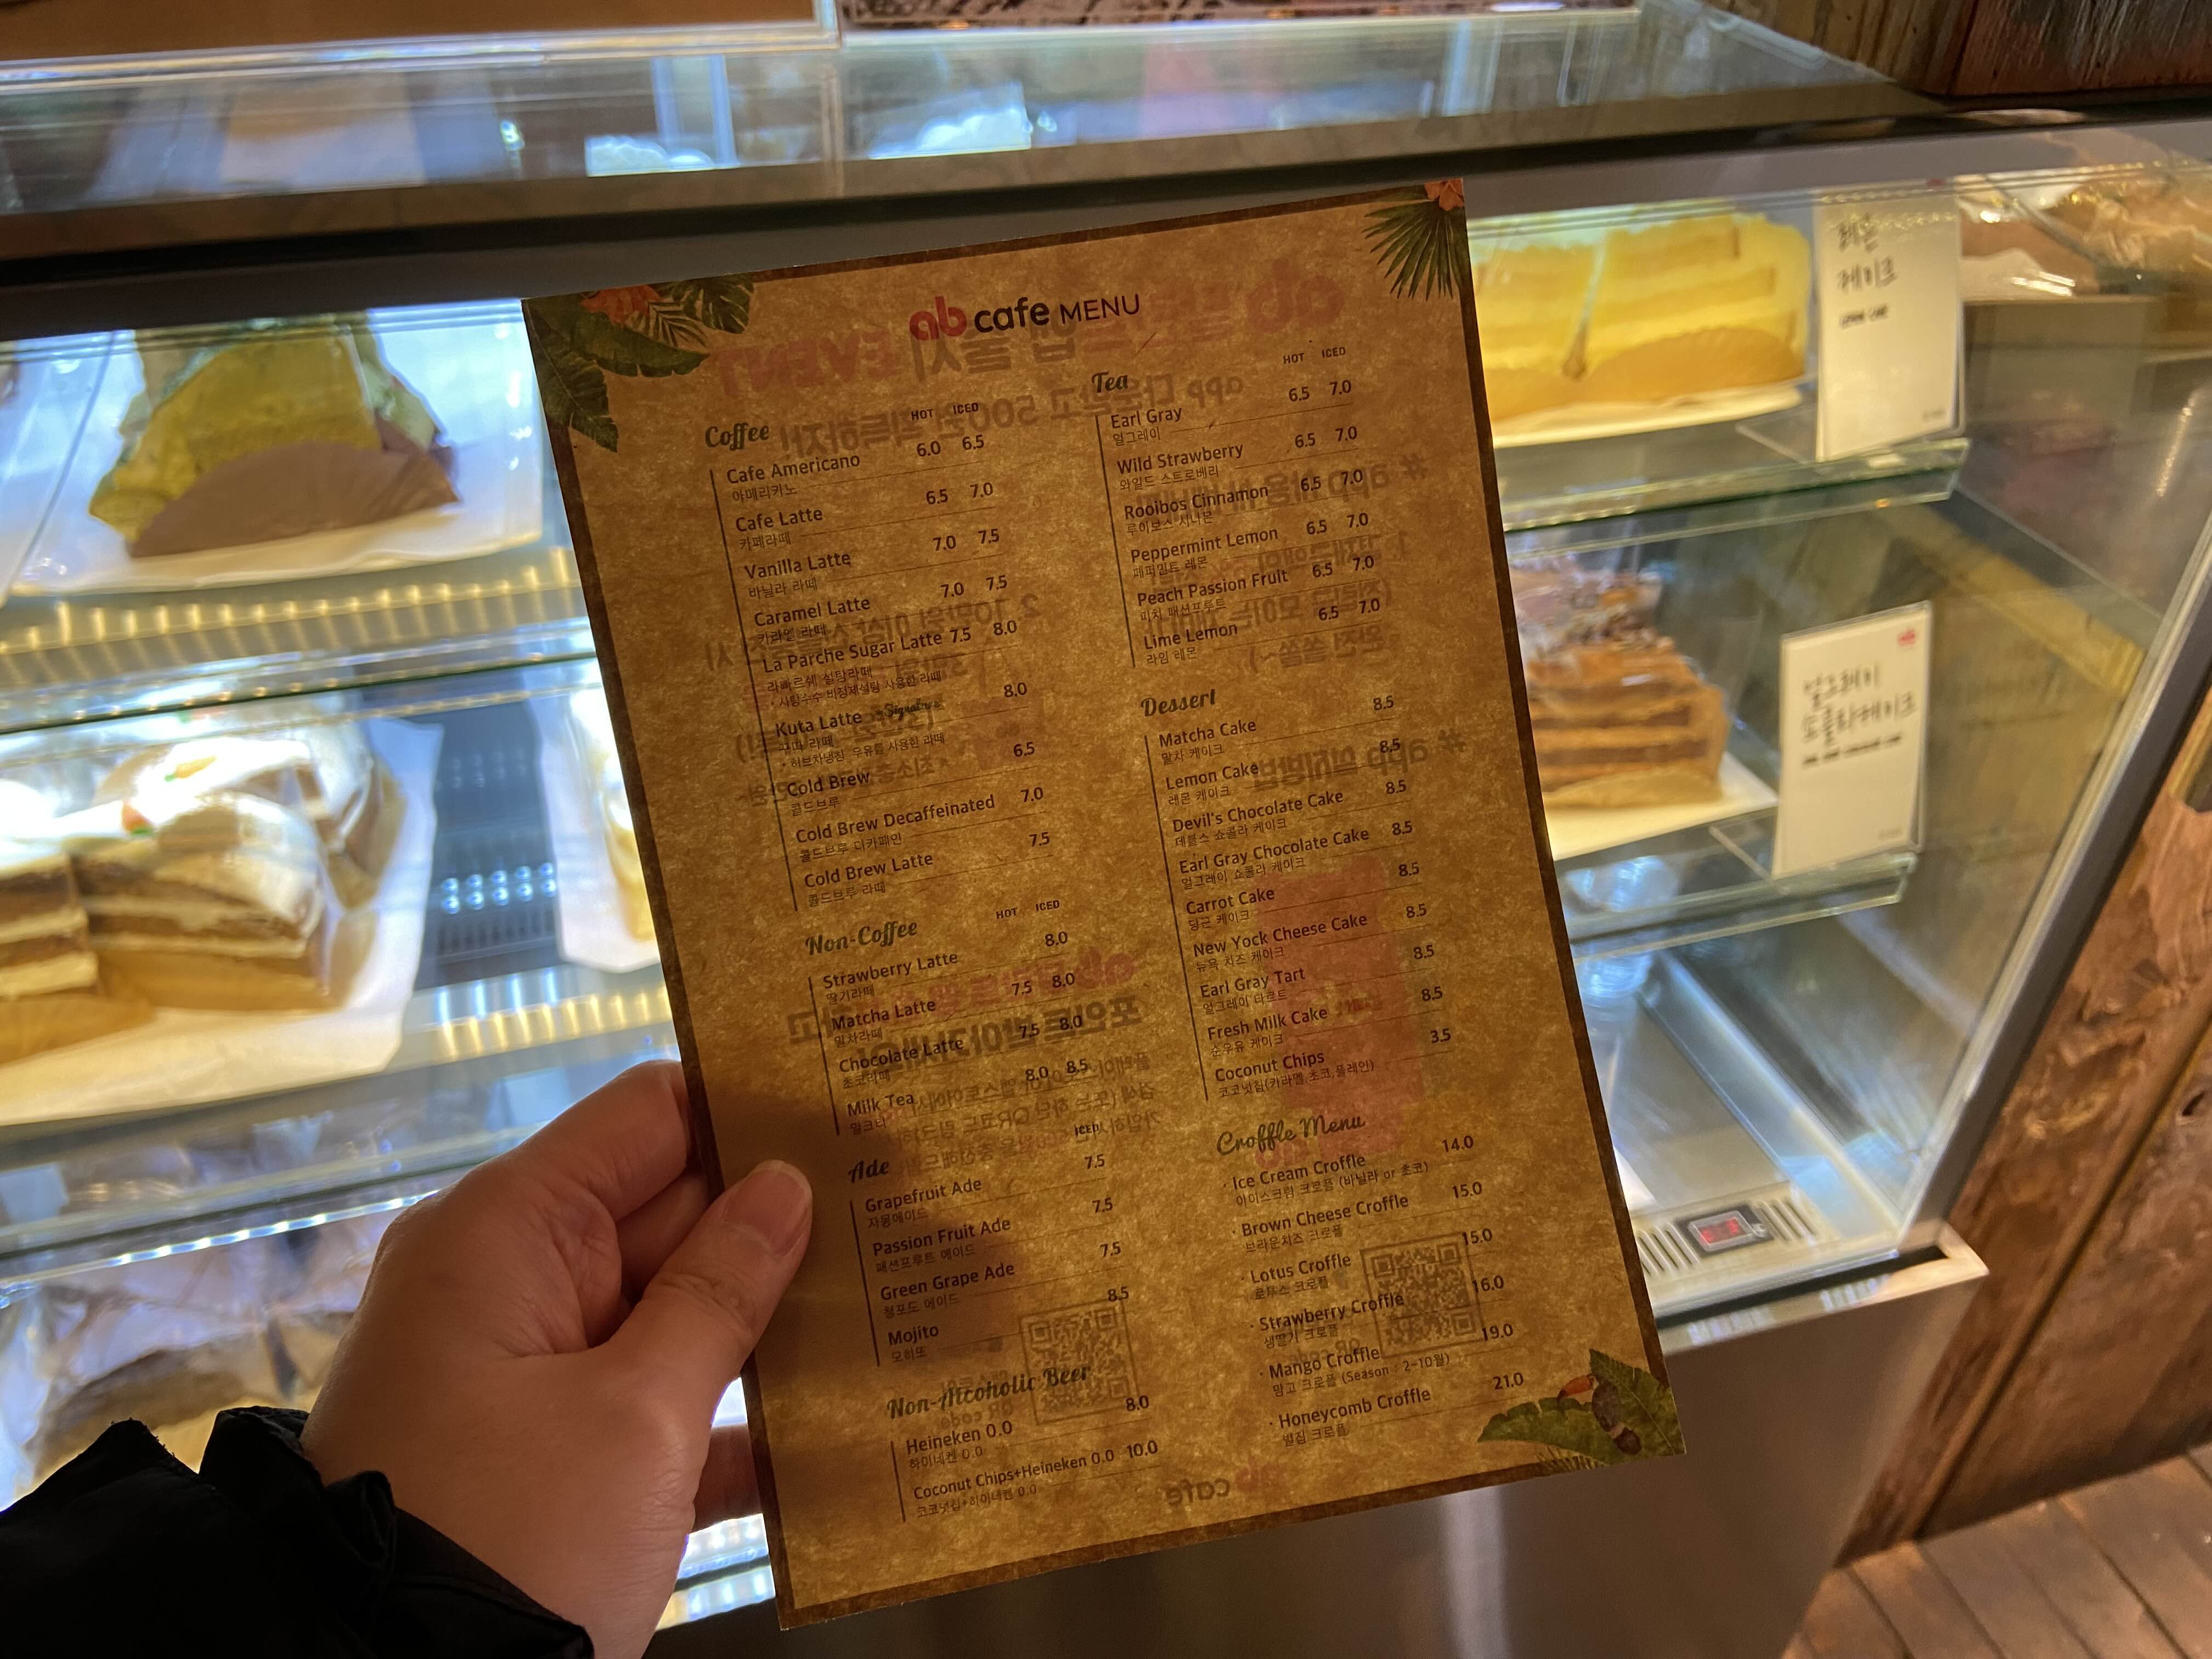 ab cafe MENU
Coffee
HOT ICED
Cafe Americano 6.0 6.5
아메리카노
Cafe Latte 6.5 7.0
카페라떼
Vanilla Latte 7.0 7.5
바닐라 라떼
Caramel Latte 7.0 7.5
카라멜 라떼
La Parche Sugar Latte 7.5 8.0
라빠르쉐 설탕라떼
• 사탕수수 비정제설탕 사용한 라떼
Kuta Latte Signature 8.0
꾸따 라떼
• 허브차냉침 우유를 사용한 라떼
Cold Brew 6.5
콜드브루
Cold Brew Decaffeinated 7.0
콜드브루 디카페인
Cold Brew Latte 7.5
콜드브루 라떼
Non-Coffee
HOT ICED
Strawberry Latte 8.0
딸기라떼
Matcha Latte 7.5 8.0
말차라떼
Chocolate Latte 7.5 8.0
초코라떼
Milk Tea 8.0 8.5
밀크티
Ade
ICED
Grapefruit Ade 7.5
자몽에이드
Passion Fruit Ade 7.5
패션프루트 에이드
Green Grape Ade 7.5
청포도 에이드
Mojito 8.5
모히또
Non-Alcoholic Beer
Heineken 0.0 8.0
하이네켄 0.0
Coconut Chips+Heineken 0.0 10.0
코코넛칩+하이네켄 0.0
Tea
HOT ICED
Earl Gray 6.5 7.0
얼그레이
Wild Strawberry 6.5 7.0
와일드 스트로베리
Rooibos Cinnamon 6.5 7.0
루이보스 시나몬
Peppermint Lemon 6.5 7.0
페퍼민트 레몬
Peach Passion Fruit 6.5 7.0
피치 패션프루트
Lime Lemon 6.5 7.0
라임 레몬
Dessert
Matcha Cake 8.5
말차 케이크
Lemon Cake 8.5
레몬 케이크
Devil's Chocolate Cake 8.5
데블스 쇼콜라 케이크
Earl Gray Chocolate Cake 8.5
얼그레이 쇼콜라 케이크
Carrot Cake 8.5
당근 케이크
New Yock Cheese Cake 8.5
뉴욕 치즈 케이크
Earl Gray Tart 8.5
얼그레이 타르트
Fresh Milk Cake 8.5
순우유 케이크
Coconut Chips 3.5
코코넛칩(카라멜,초코,플레인)
Croffle Menu
· Ice Cream Croffle 14.0
아이스크림 크로플 (바닐라 or 초코)
· Brown Cheese Croffle 15.0
브라운치즈 크로플
· Lotus Croffle 15.0
로투스 크로플
· Strawberry Croffle 16.0
생딸기 크로플
· Mango Croffle 19.0
망고 크로플 (Season : 2-10월)
· Honeycomb Croffle 21.0
벌집 크로플
레몬
케이크
LEMON CAKE
얼그레이
쇼콜라케이크